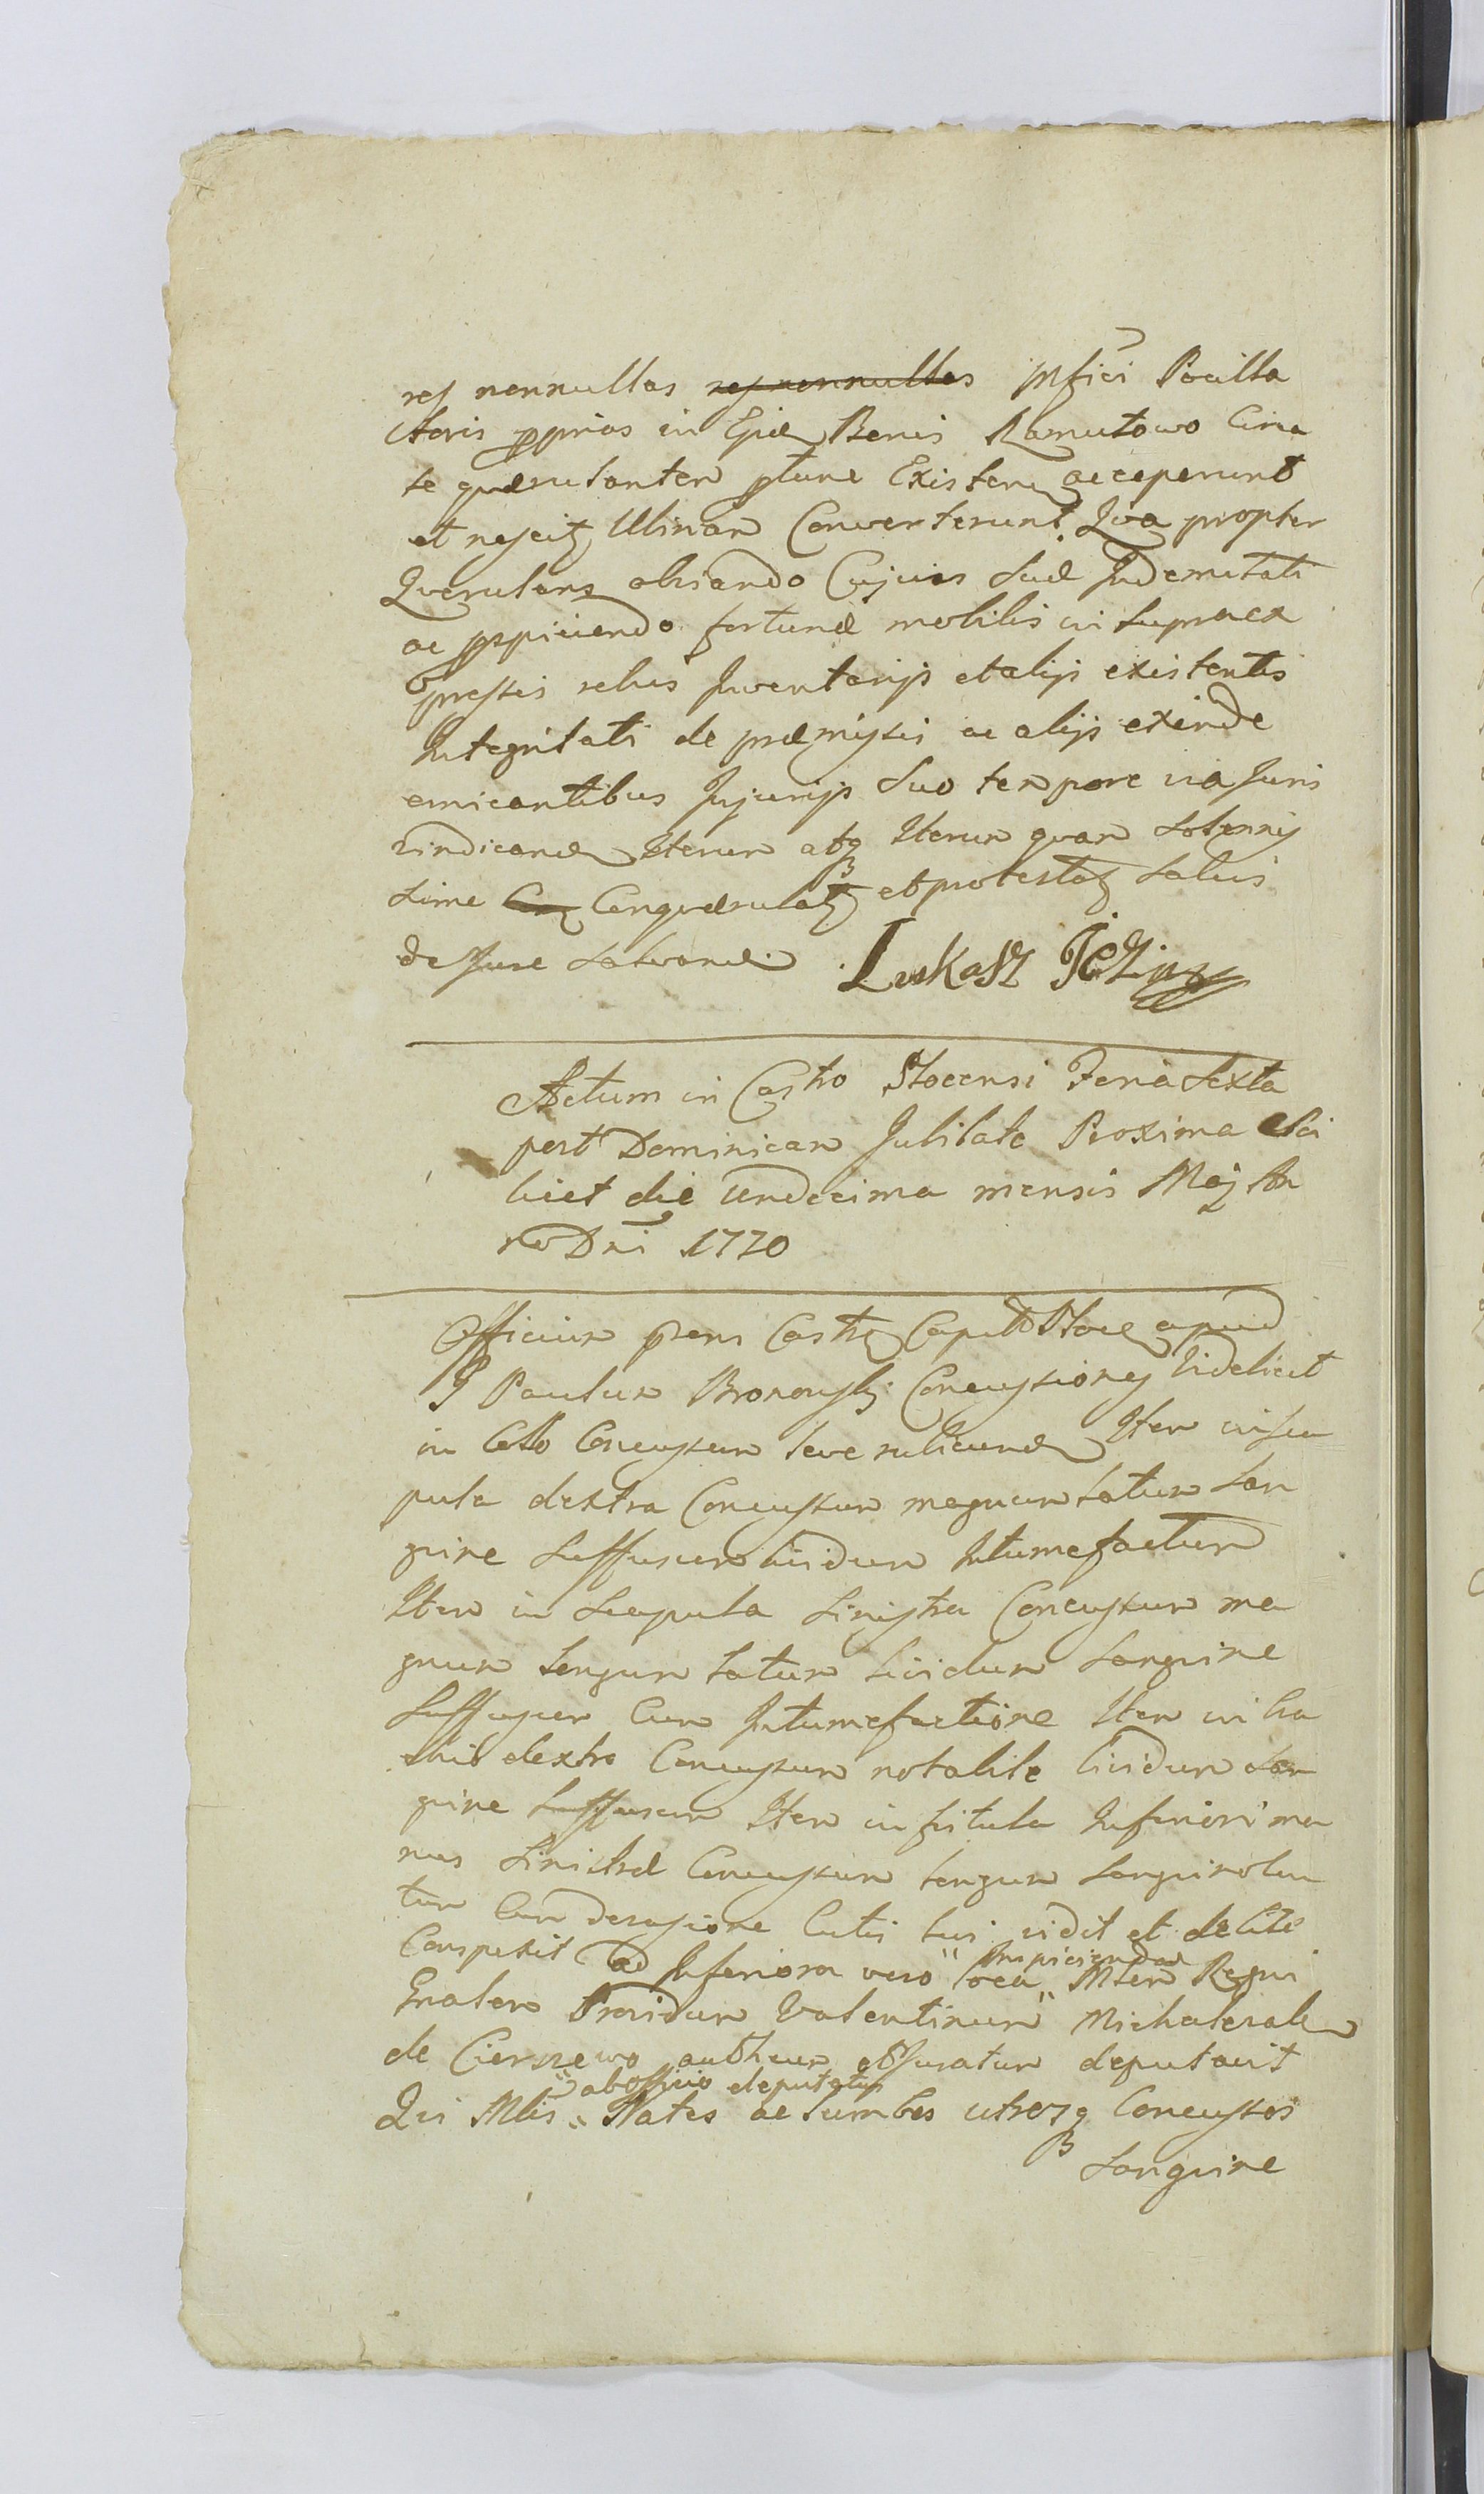 res nonnullas res nonnullas Mfici Pocilla
Aeris pprias in Bonis Ramutowo Circa
te querulantem ptunc Existen acceperunt
et nescitz Ulinam Converterunt. Qva propter
Qverulans obviando Cujuis suæ Indemnitati
ac pspiciendo fortunæ mobilis in supraex
pressis rebus Inventarijs et alijs existentis
Integritati de præmissis ac alijs exinde
emicantibus Injurijs suo tempore via Juris
vindicand Iterum atq Iterum quam solennis
sime Conquerulatz et protestatz salvis
de Jure salvand. Łukasz
Actum in Castro Płocensi Feria Sexta
post Dominicam Jubilate Proxima sci
licet die undecima mensis Maij An
no Dni 1770
Officium psens Castr Capit Ploc apud
G Paulum Concussiones Videlicet
in Collo Concussum leve rubicund Item in sca
pula dextra Concussum magnum latum san
gvine suffusum lividum Intumefactum
Item in scapula sinistra Concussum ma
gnum longum latum lividum sangvine
suffusum Cum Intumefactione Item in bra
chio dextro Concussum notabile lividum san
gvine suffusum Item in fistula Inferiori ma
nus sinistræ Concussum longum sangvinolen
tum Cum derasione Cutis sui vidit et de
Conspexit ad Inferiora vero loca Inspicienda Mtem Regni
Gnalem Providum Valentinum Michalczak
de Ciernewo authcum et Juratum deputavit
Qui Mlis ab Officio deputatus Nates ac lumbos utrosq Concussos
Sangvine